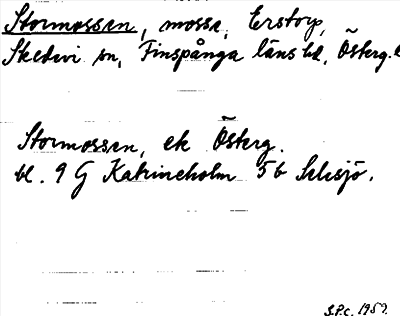 Stormossen, mossa, Erstorp,
Skedevi sn, Finspånga läns hd, Österg.
Stormossen, ek Österg.
bl. 9 G Katrineholm 5 b
S.P.c. 1959.